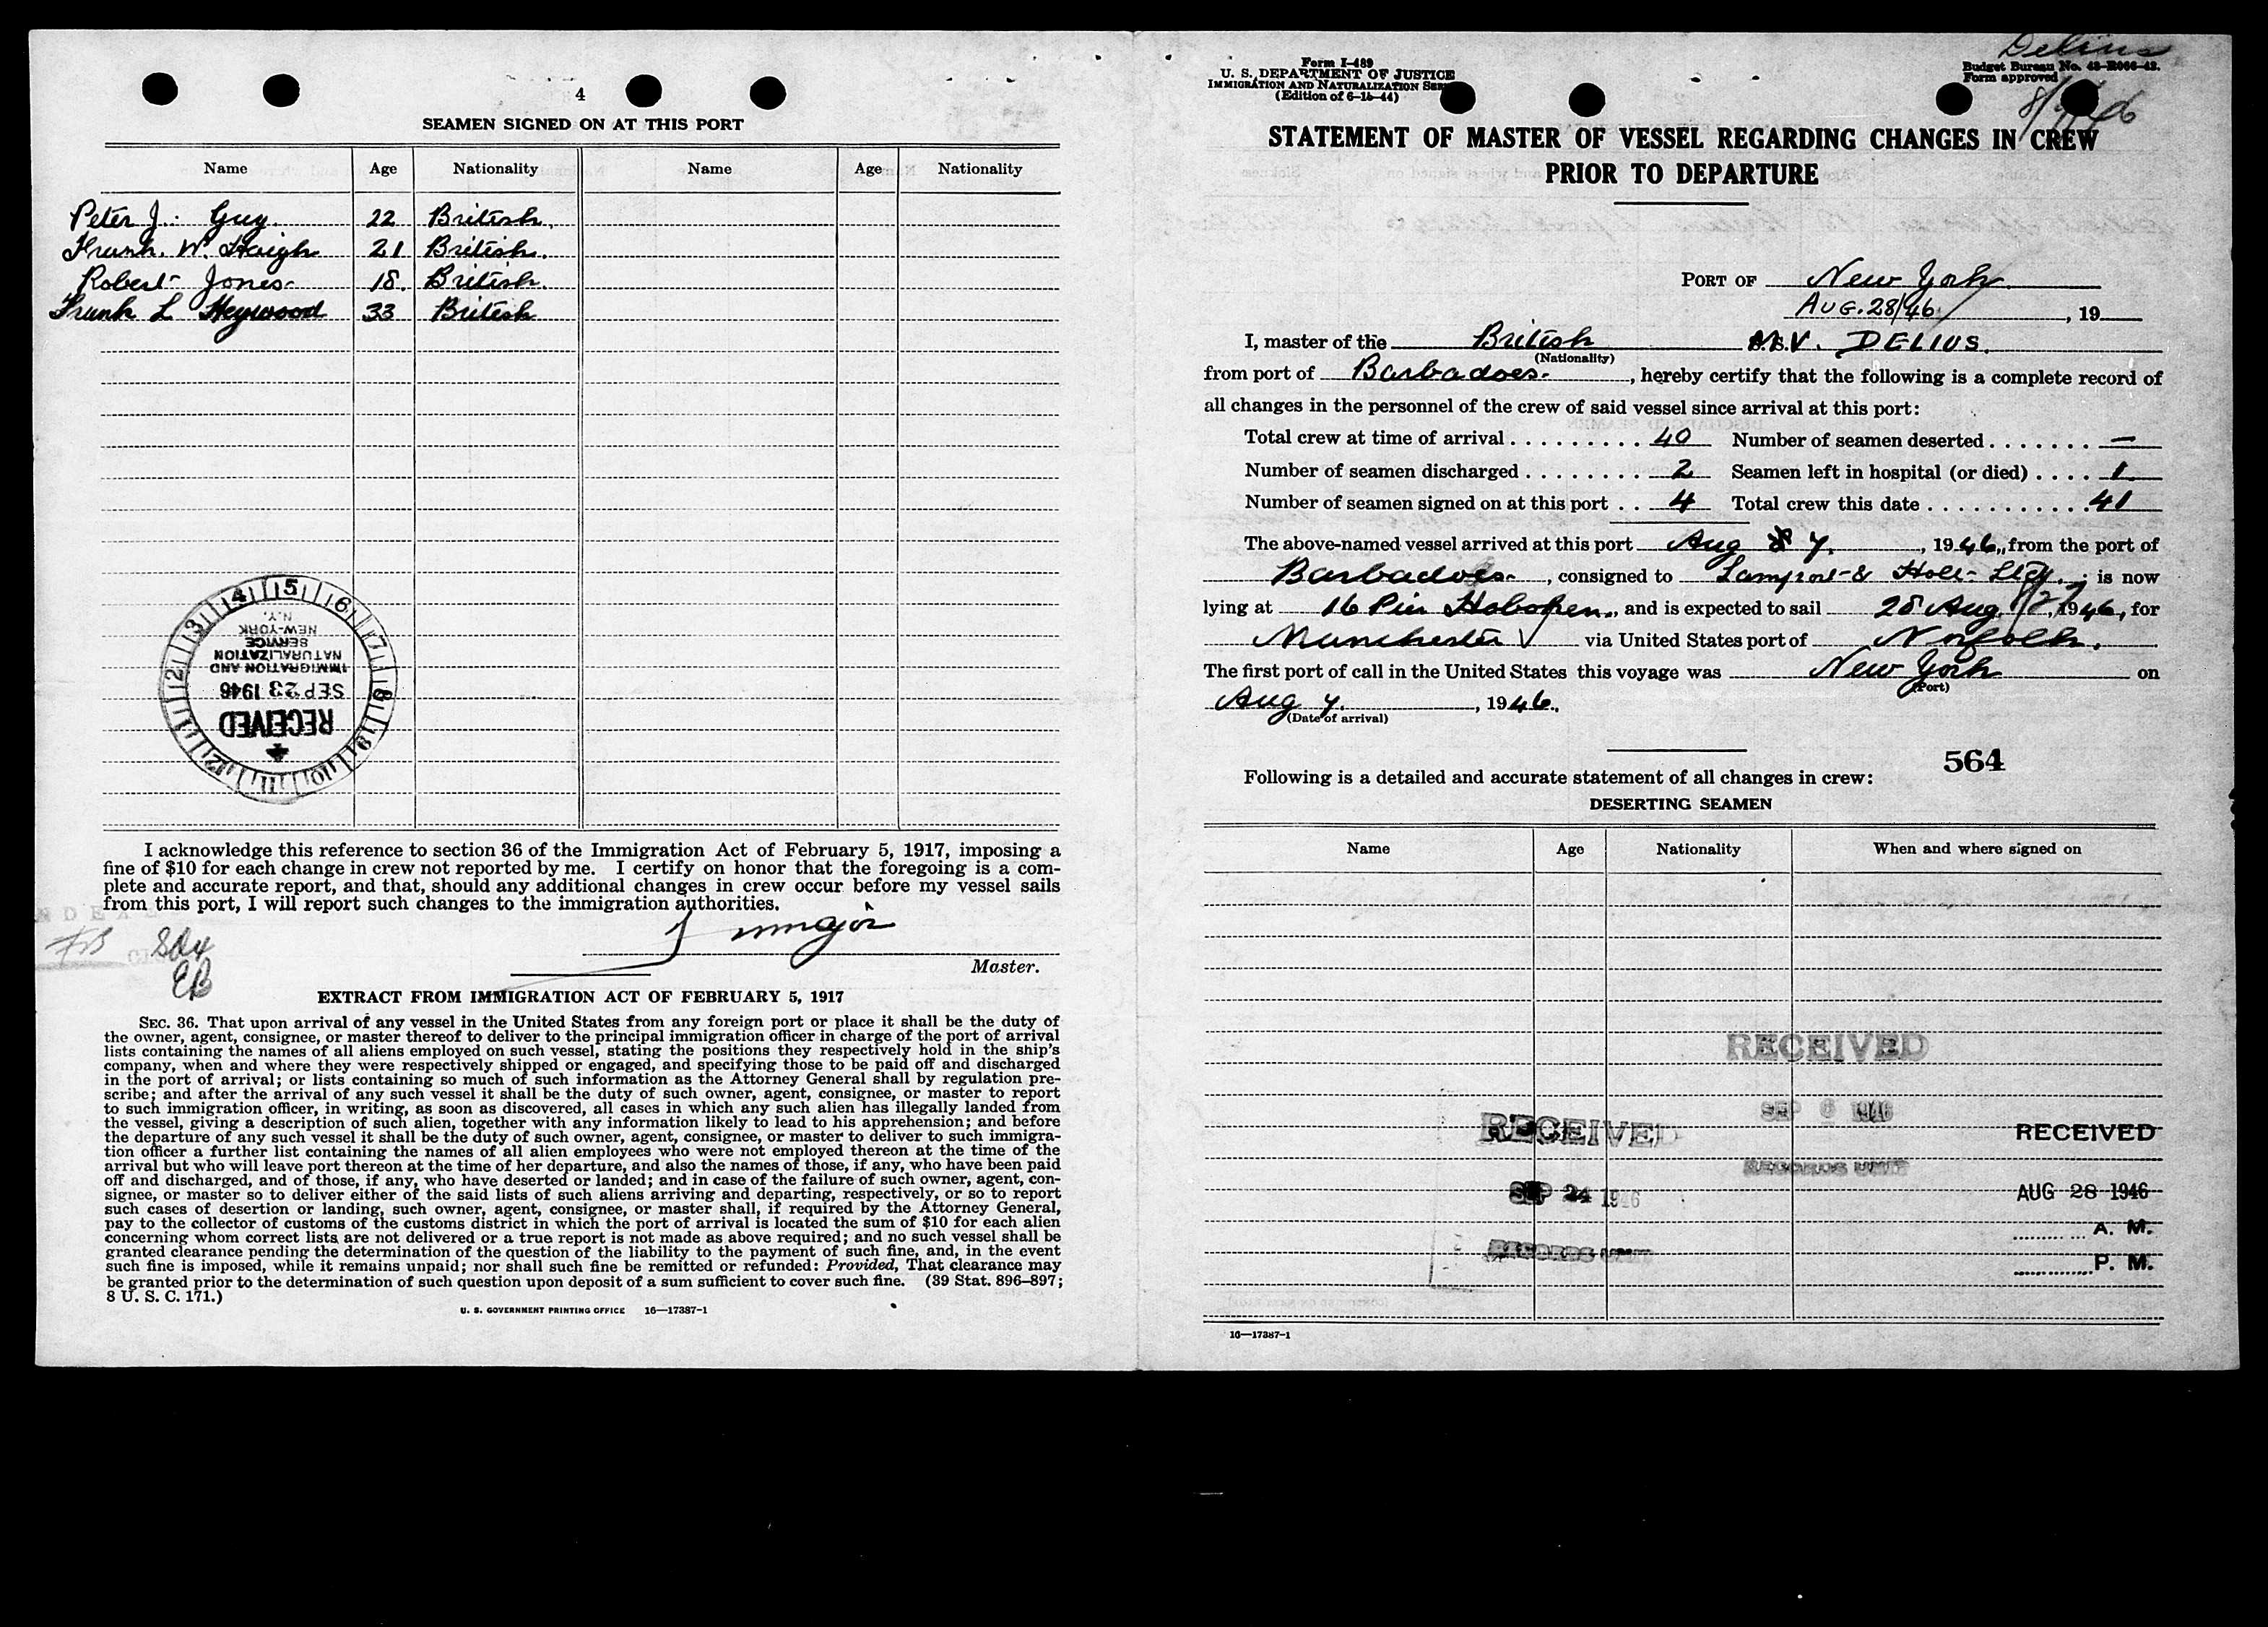 4
SEAMEN SIGNED ON AT THIS PORT
Name Age Nationality Name Age Nationality
Peter J. Guy 22 British.
Frank. W. Haigh 21 British.
Robert Jones 18. British.
Frank L Heywood 33 British
5 6 7 8 9 10 11 12 1 2 3 4
RECEIVED
SEP 23 1946
IMMIGRATION AND
NATURALIZATION
SERVICE
NEW-YORK
N.Y.
I acknowledge this reference to section 36 of the Immigration Act of February 5, 1917, imposing a
fine of $10 for each change in crew not reported by me. I certify on honor that the foregoing is a com-
plete and accurate report, and that, should any additional changes in crew occur before my vessel sails
from this port, I will report such changes to the immigration authorities.
Master.
EB
EXTRACT FROM IMMIGRATION ACT OF FEBRUARY 5, 1917
SEC. 36. That upon arrival of any vessel in the United States from any foreign port or place it shall be the duty of
the owner, agent, consignee, or master thereof to deliver to the principal immigration officer in charge of the port of arrival
lists containing the names of all aliens employed on such vessel, stating the positions they respectively hold in the ship's
company, when and where they were respectively shipped or engaged, and specifying those to be paid off and discharged
in the port of arrival; or lists containing so much of such information as the Attorney General shall by regulation pre-
scribe; and after the arrival of any such vessel it shall be the duty of such owner, agent, consignee, or master to report
to such immigration officer, in writing, as soon as discovered, all cases in which any such alien has illegally landed from
the vessel, giving a description of such alien, together with any information likely to lead to his apprehension; and before
the departure of any such vessel it shall be the duty of such owner, agent, consignee, or master to deliver to such immigra-
tion officer a further list containing the names of all alien employees who were not employed thereon at the time of the
arrival but who will leave port thereon at the time of her departure, and also the names of those, if any, who have been paid
off and discharged, and of those, if any, who have deserted or landed; and in case of the failure of such owner, agent, con-
signee, or master so to deliver either of the said lists of such aliens arriving and departing, respectively, or so to report
such cases of desertion or landing, such owner, agent, consignee, or master shall, if required by the Attorney General,
pay to the collector of customs of the customs district in which the port of arrival is located the sum of $10 for each alien
concerning whom correct lists are not delivered or a true report is not made as above required; and no such vessel shall be
granted clearance pending the determination of the question of the liability to the payment of such fine, and, in the event
such fine is imposed, while it remains unpaid; nor shall such fine be remitted or refunded: Provided, That clearance may
be granted prior to the determination of such question upon deposit of a sum sufficient to cover such fine. (39 Stat. 896–897;
8 U. S. C. 171.)
U. S. GOVERNMENT PRINTING OFFICE 16—17387-1
Delius
Form I-489
U. S. DEPARTMENT OF JUSTICE
IMMIGRATION AND NATURALIZATION SER
(Edition of 6-15-44)
Budget Bureau No. 43-R066-42.
Form approved
STATEMENT OF MASTER OF VESSEL REGARDING CHANGES IN CREW
PRIOR TO DEPARTURE
PORT OF New York
AUG. 28/46, 19
I, master of the British M.V. DELIUS.
(Nationality)
from port of Barbadoes., hereby certify that the following is a complete record of
all changes in the personnel of the crew of said vessel since arrival at this port:
Total crew at time of arrival . . . . . . . . . 40 Number of seamen deserted . . . . . . . —
Number of seamen discharged . . . . . . . . 2 Seamen left in hospital (or died) . . . . 1
Number of seamen signed on at this port . . 4 Total crew this date . . . . . . . . . . . 41
The above-named vessel arrived at this port Aug 7., 1946, from the port of
Barbadoes, consigned to Lamport & Holt Ltd.; is now
lying at 16 Pier Hoboken., and is expected to sail 28 Aug. 8/27, 1946, for
Manchester via United States port of Norfolk.
The first port of call in the United States this voyage was New York on
(Port)
Aug 7., 1946.
(Date of arrival)
564
Following is a detailed and accurate statement of all changes in crew:
DESERTING SEAMEN
Name Age Nationality When and where signed on
RECEIVED
SEP 6 1946
RECORDS UNIT
RECEIVED
SEP 24 1946
RECORDS UNIT
RECEIVED
AUG 28 1946
A. M.
P. M.
16—17387-1